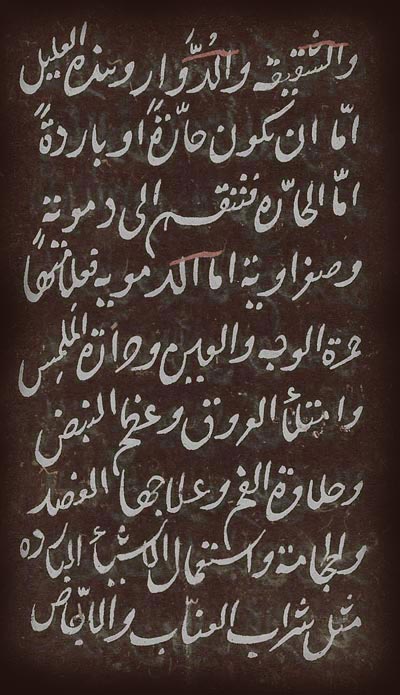 والشقيقه والدوّار وهذه العليل
امّا ان تكون حارّةً او باردةً
امّا الحارّه فتنقسم الى دموية
وصفراوية اما الدمويه فعلامتها
حمرة الوجه والعين وحرارة الملمس
وامتلأ العروق وعظم النبض
وحلاوة الفم وعلاجها الفصد
والحجامة واستعمال الاشيأ البارده
مثل شراب العنّاب والاجّاص